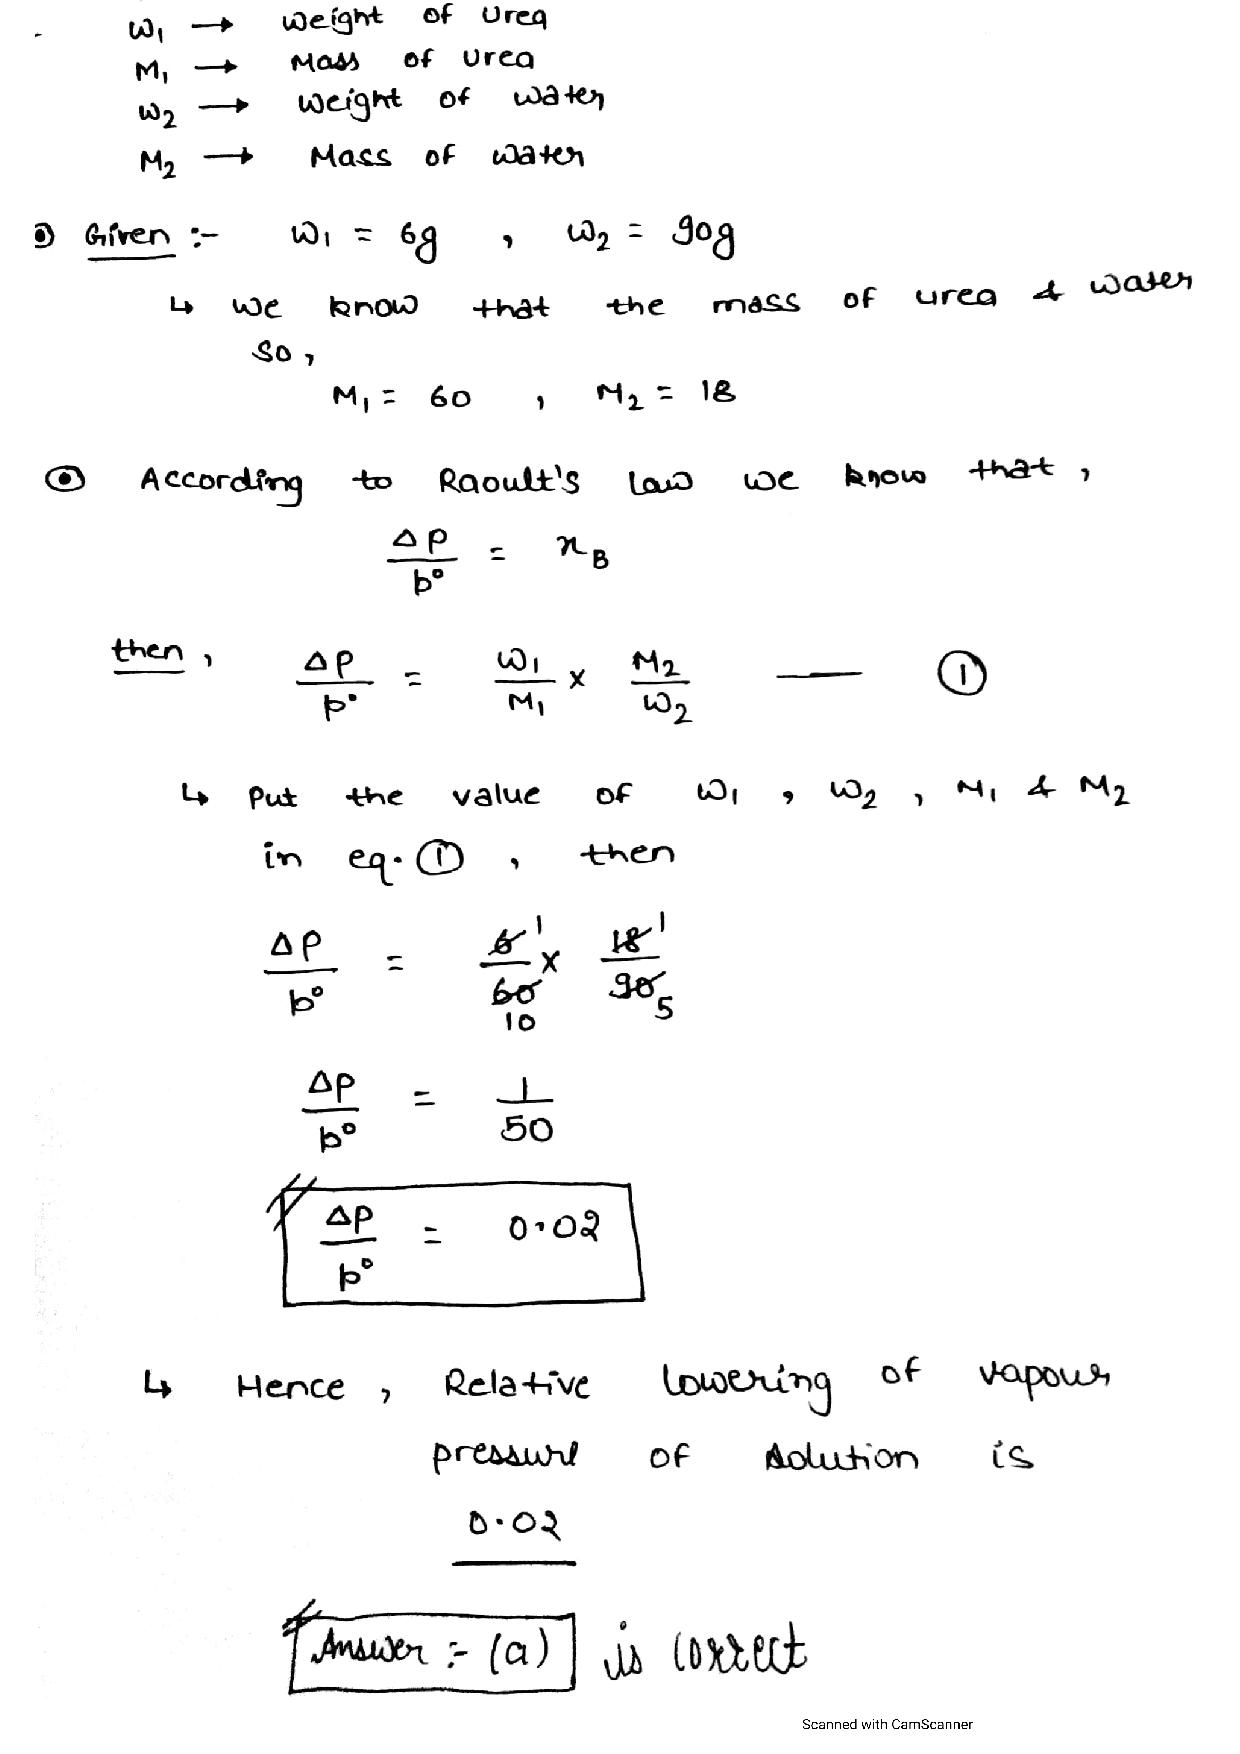 W₁ → weight of urea
M₁ → Mass of urea
W₂ → weight of water
M₂ → Mass of water
Given :- W₁ = 6g , W₂ = 90g
↳ we know that the mass of urea & water
so,
M₁ = 60 , M₂ = 18
According to Raoult's law we know that,
ΔP/p° = x_B
then, ΔP/p° = W₁/M₁ × M₂/W₂ —— ①
↳ Put the value of W₁ , W₂ , M₁ & M₂
in eq. ① , then
ΔP/p° = 6/60 × 18/90
1 1
10 5
ΔP/p° = 1/50
ΔP/p° = 0.02
↳ Hence , Relative lowering of vapour
pressure of solution is
0.02
Answer :- (a) is correct
Scanned with CamScanner